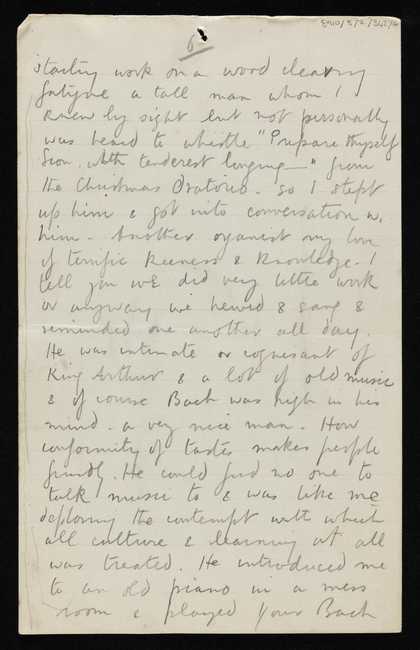 6
starting work on a wood clearing
fatigue a tall man whom I
knew by sight but not personally
was heard to whistle "Prepare thyself
Sion, with tenderest longing -" from
the Christmas Oratorio - so I stept
up him & got into conversation w.
him - Another organist my love
of terrific keeness & knowledge - I
tell you we did very little work
or anyway we hewed & sang &
reminded one another all day.
He was intimate or cognisant of
King Arthur & a lot of old music
& of course Bach was high in his
mind - a very nice man. How
conformity of tastes makes people
friendly. He could find no one to
talk music to & was like me
deploring the contempt with which
all culture & learning at all
was treated. He introduced me
to an old piano in a mess
room & played your Bach